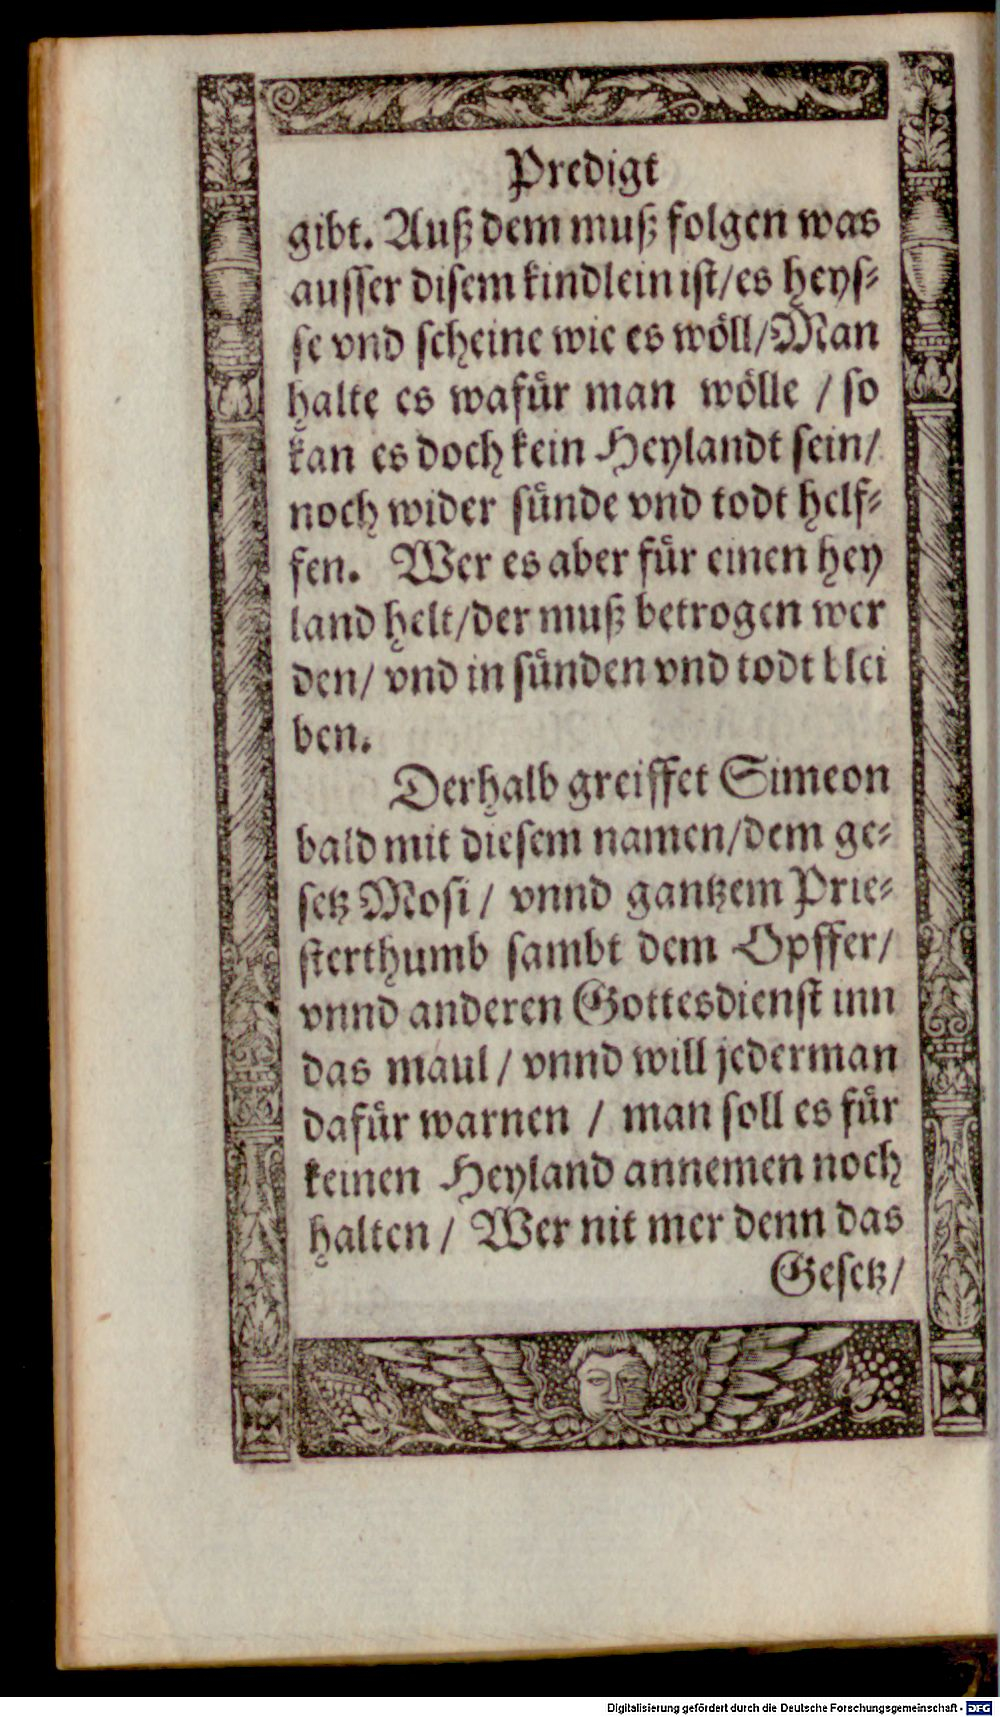 Predigt
gibt. Auß dem muß folgen was
ausser disem kindlein ist/es heys⸗
se vnd scheine wie es wöll/Man
halte es wafür man wölle / so
kan es doch kein Heylandt sein/
noch wider sünde vnd todt helf⸗
fen. Wer es aber für einen hey
land helt/der muß betrogen wer
den/ vnd in sünden vnd todt blei
ben.
Derhalb greiffet Simeon
bald mit diesem namen/dem ge⸗
setz Mosi/ vnnd gantzem Prie⸗
sterthumb sambt dem Opffer/
vnnd anderen Gottesdienst inn
das maul/ vnnd will jederman
dafür warnen / man soll es für
keinen Heyland annemen noch
halten/ Wer nit mer denn das
Gesetz/
Digitalisierung gefördert durch die Deutsche Forschungsgemeinschaft - DFG